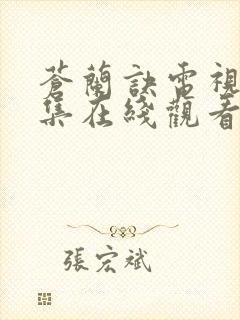 蒼蘭訣電視
集在綫觀看
張宏斌